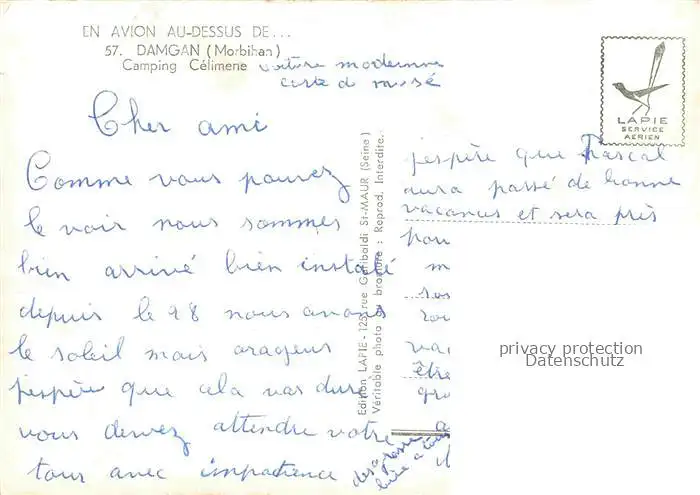 EN AVION AU-DESSUS DE...
57. DAMGAN (Morbihan)
Camping Célimene
voiture moderne
carte d
LAPIE
SERVICE
AERIEN
Cher ami
Comme vous pouvez
le voir nous sommes
bien arrivé bien installé
depuis le 28 nous avons
le soleil mais orageux
j'espère que cela vas durer
vous devez attendre votre
tour avec impatience
Edition LAPIE - 125, rue Garibaldi St-MAUR (Seine)
Véritable photo au bromure : Reprod. Interdite.
j'espère que Pascal
aura passé de bonne
vacances et sera près
pour
être
gro
privacy protection
Datenschutz